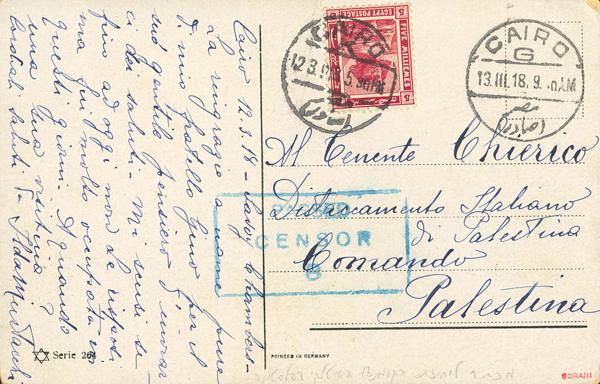 Cairo 12.3.18 - Savoy Chambers -
La ringrazio a nome pure
di mio fratello Gino per il
suo gentile pensiero d'
e dei saluti. Mi scusi se
fino ad oggi non Le risposi
ma fui molto occupata in
questi giorni. A quando
una Sua visita?
Cordiali saluti da
Serie 264
CAIRO
12.3.18 5.30PM
EGYPT POSTAGE
FIVE MILLIEMES
5 5
CAIRO
G
13.III.18.9. AM
مصر
Al Tenente Chierico
Distaccamento Italiano
di Palestina
Comando
Palestina
PASSED
CENSOR
8
PRINTED IN GERMANY
SORANI